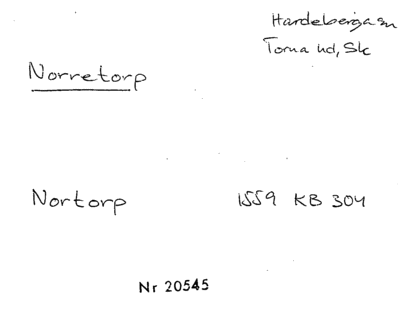 Hardeberga sn
Torna hd, Sk
Norretorp
Nortorp 1559 KB 304
Nr 20545